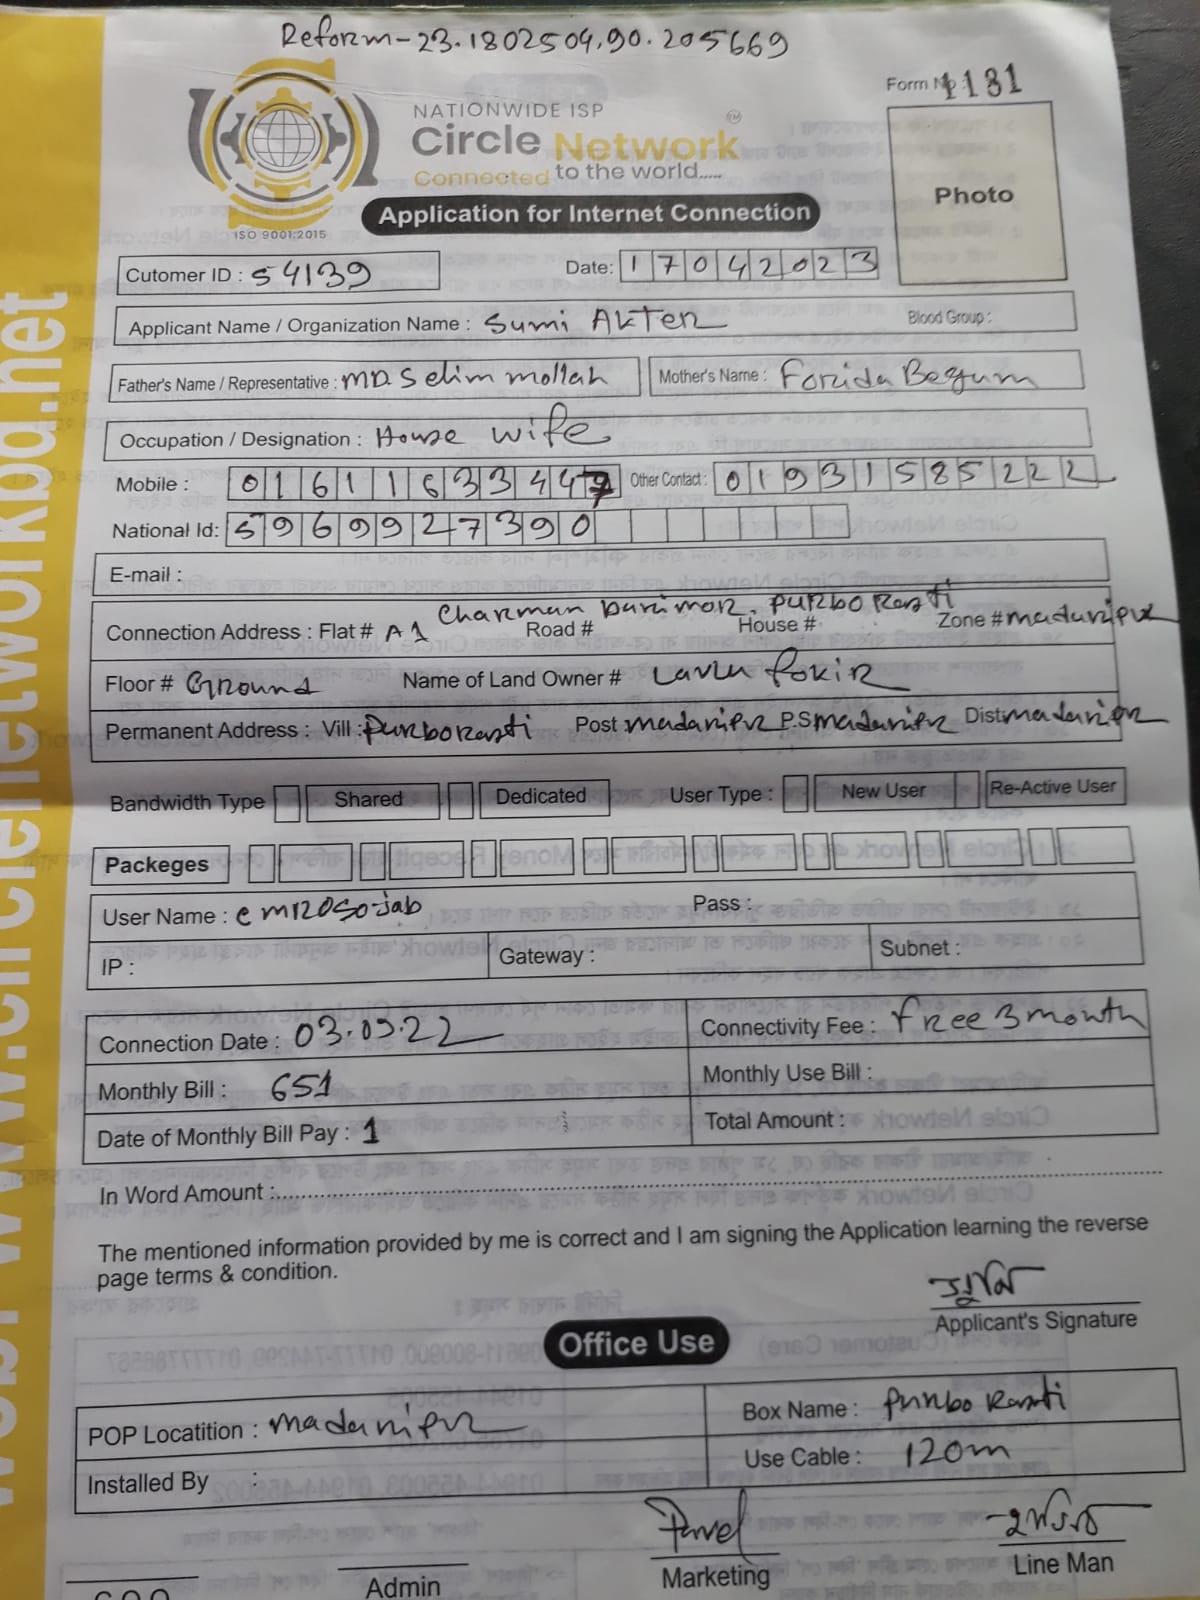 Reform-23.1802504.90.205669
Form No 1131
NATIONWIDE ISP
Circle Network TM
Connected to the world.....
ISO 9001:2015
Application for Internet Connection
Photo
Cutomer ID : 54139
Date: 17042023
Applicant Name / Organization Name : Sumi AKTER
Blood Group :
Father's Name / Representative : MD. Selim mollah
Mother's Name : Forida Begum
Occupation / Designation : House wife
Mobile : 01611633447
Other Contact : 01931585222
National Id: 5969927390
E-mail :
Charman barimor. PURbo Rasti
Connection Address : Flat # A1 Road # House # Zone # madaripur
Floor # Ground Name of Land Owner # Lavlu fokir
Permanent Address : Vill : Purbo Rasti Post madaripur P.S madaripur Dist madaripur
Bandwidth Type Shared Dedicated User Type : New User Re-Active User
Packeges
User Name : Pass :
IP : Gateway : Subnet :
Connection Date : 03.03.22
Connectivity Fee : free 3 month
Monthly Bill : 651
Monthly Use Bill :
Date of Monthly Bill Pay : 1
Total Amount :
In Word Amount :
The mentioned information provided by me is correct and I am signing the Application learning the reverse
page terms & condition.
Applicant's Signature
Office Use
POP Locatition : madaripur
Box Name : purbo Rasti
Installed By :
Use Cable : 120m
Pavel
Admin
Marketing
Line Man